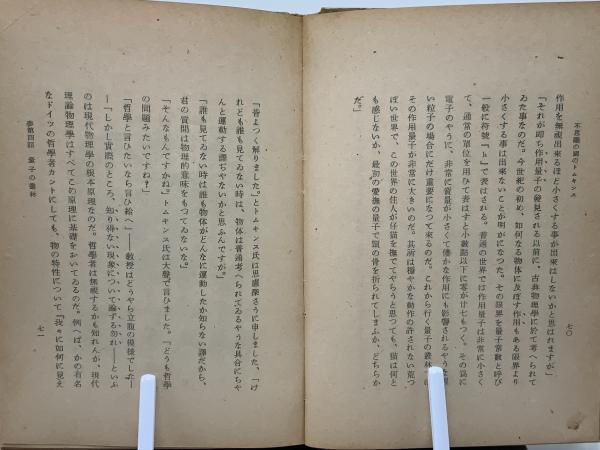 不思議の國のトムキンス
七〇
作用を無視出來るほど小さくする事が出來はしないかと思はれますが」
「それが即ち作用量子の發見される以前に、古典物理學に於て考へられて
ゐた事なのだ。今世紀の初め、如何なる物体に及ぼす作用もある限界より
小さくする事は出來ないことが明かになつた。その限界を量子常數と呼び
一般に符號「h」で表はされる。普通の世界では作用量子は非常に小さく
て、通常の單位を用ひて表はすと小數點以下に零が廿七もつく。その爲に
電子のやうに、非常に質量が小さくて僅かな作用にも影響されるやうな
い粒子の場合にだけ重要になつて來るのだ。これから行く量子の叢林
その作用量子が非常に大きいのだ。其所は穩やかな動作の許されない荒つ
ぽい世界で、この世界の住人が仔猫を撫でてやらうと思つても、猫は何と
も感じないか、最初の愛撫の量子で頸の骨を折られてしまふか、どちらか
だ。」
「皆よつく解りました。」とトムキンス氏は思慮深さうに申しました、「け
れども誰も見てゐない時は、物体は普通考へられてゐるやうな具合にちや
んと運動する譯ぢやないかと思ふんですが」
「誰も見てゐない時は誰も物体がどんなに運動したか知らない譯だから、
君の質問は物理的意味をもつてゐないな」
「そんなもんですかね。」トムキンス氏は大聲で言ひました。「どうも哲學
の問題みたいですね?」
「哲學と言ひたいなら言ひ給へ」――教授はどうやら立腹の模樣でした
―「しかし實際のところ、知り得ない現象について論ずる勿れ――といふ
のは現代物理學の根本原理なのだ。哲學者は無視するかも知れんが、現代
理論物理學はすべてこの原理に基礎をおいてゐるのだ。例へば、かの有名
なドイツの哲學者カントにしても、物の特性について『我々に如何に見え
夢第四話 量子の叢林
七一